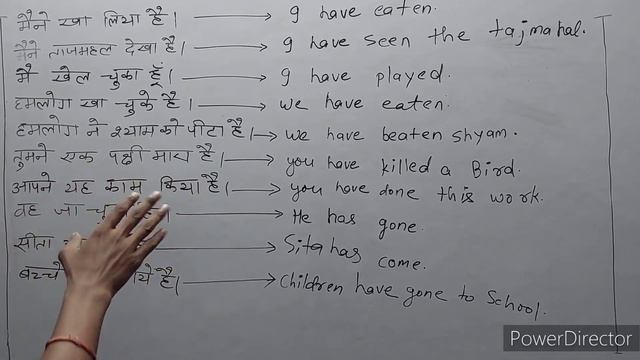 मैंने खा लिया है। → I have eaten.
मैंने ताजमहल देखा है। → I have seen the tajmahal.
मैं खेल चुका हूँ। → I have played.
हमलोग खा चुके है। → we have eaten.
हमलोग ने श्याम को पीटा है। → we have beaten shyam.
तुमने एक पक्षी मारा है। → you have killed a Bird.
आपने यह काम किया है। → you have done this work.
वह जा → He has gone.
सीता → Sita has come.
बच्चे है। → Children have gone to School.
PowerDirector